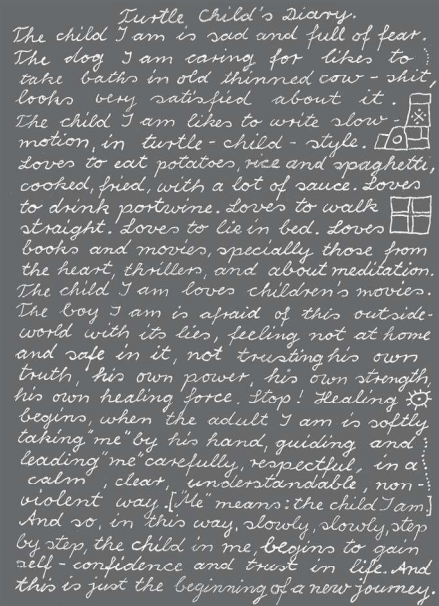 Turtle Child's Diary.
The child I am is sad and full of fear.
The dog I am caring for likes to
take baths in old thinned cow-shit,
looks very satisfied about it.
The child I am likes to write slow-
motion, in turtle-child-style.
Loves to eat potatoes, rice and spaghetti,
cooked, fried, with a lot of sauce. Loves
to drink portwine. Loves to walk
straight. Loves to lie in bed. Loves
books and movies, specially those from
the heart, thrillers, and about meditation.
The child I am loves children's movies.
The boy I am is afraid of this outside-
world with its lies, feeling not at home
and safe in it, not trusting his own
truth, his own power, his own strength,
his own healing force. Stop! Healing
begins, when the adult I am is softly
taking "me" by his hand, guiding and
leading "me" carefully, respectful, in a
calm, clear, understandable, non-
violent way. ["Me" means: the child I am.]
And so, in this way, slowly, slowly, step
by step, the child in me, begins to gain
self-confidence and trust in life. And
this is just the beginning of a new journey.